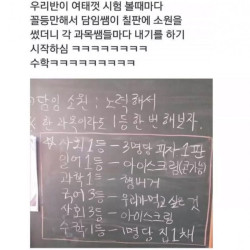 우리반이 여태껏 시험 볼때마다
꼴등만해서 담임쌤이 칠판에 소원을
썼더니 각 과목쌤들마다 내기를 하기
시작하심 ㅋㅋㅋㅋㅋㅋㅋㅋ
수학ㅋㅋㅋㅋㅋㅋㅋㅋㅋ
담임 소원 : 노력해서
한 과목이라도 1등 한 번 해보자.
사회 1등 - 3명당 피자 1판
영어 1등 - 아이스크림
과학 1등 - 햄버거
국어 3등 - 우리가 먹고 싶은 것
사회 3등 - 아이스크림
수학 1등 - 1명당 집 1채